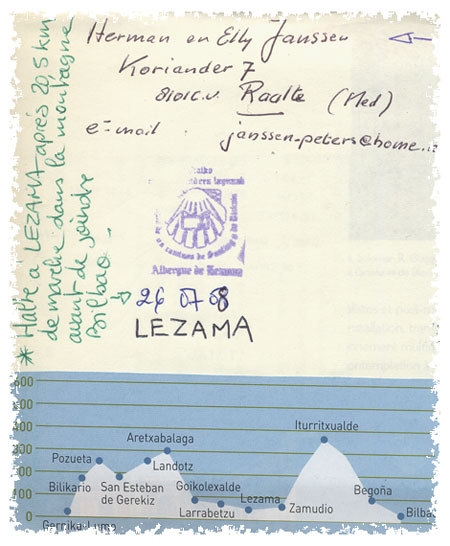 Herman en Elly Janssen
Koriander 7
8101 C.V. Raalte (Ned)
e-mail janssen-peters@home.
* Halte a LEZAMA après 20,5 km
de marche dans la montagne
avant de joindre
Bilbao -
Albergue de Lezama
26 07 08
LEZAMA
600
500
400
300
200
100
0
Iturritxualde
Aretxabalaga
Pozueta
Landotz
Bilikario
San Esteban
de Gerekiz
Goikolexalde
Begoña
Lezama
Larrabetzu
Zamudio
Bilba
Gerrika-Lumo